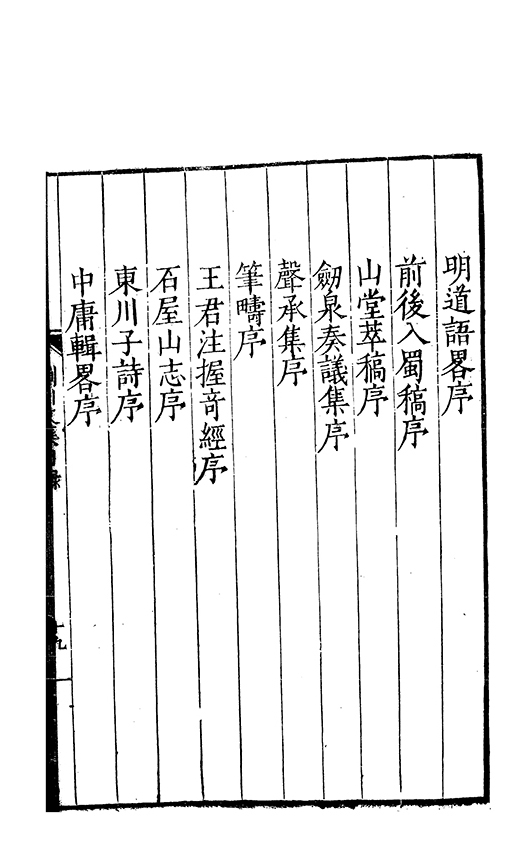 明道語畧序
前後入蜀稿序
山堂萃稿序
劒泉奏議集序
聲承集序
筆疇序
王君注握竒經序
石屋山志序
東川子詩序
中庸輯畧序